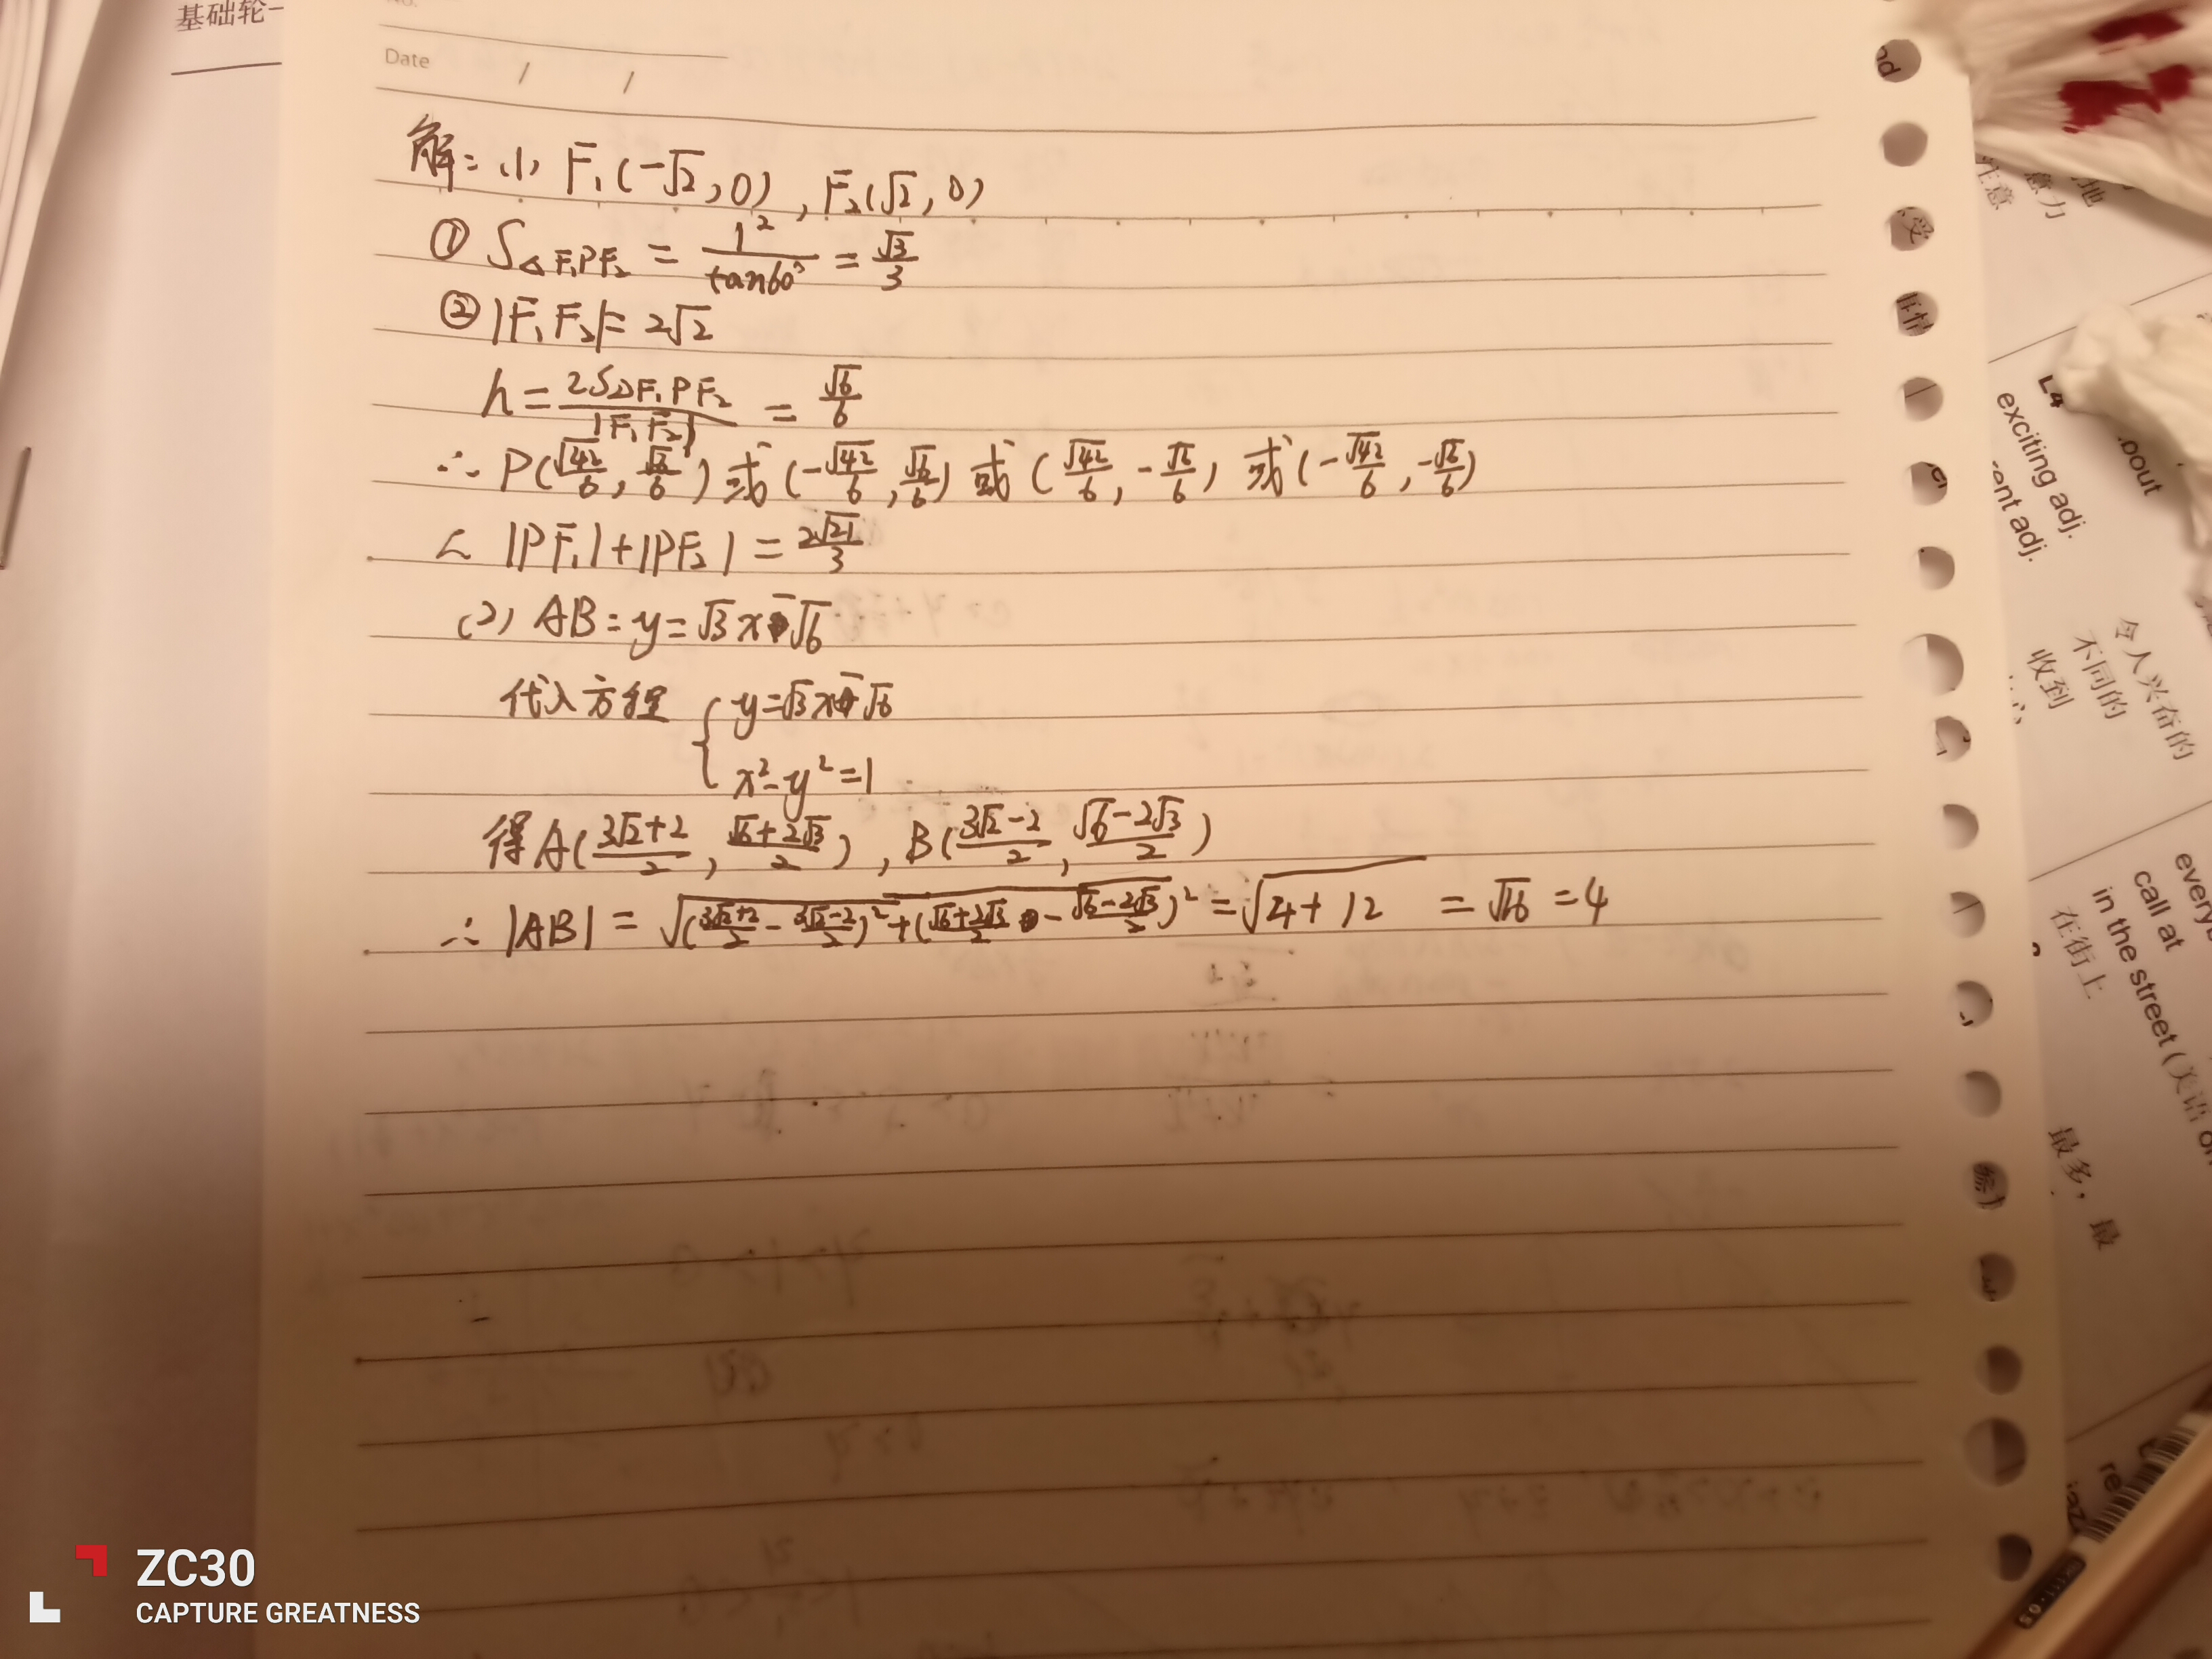 基础轮一
No.
Date / /
解: (1) F₁(-√2, 0), F₂(√2, 0)
① S△F₁PF₂ = 1²/tan60° = √3/3
② |F₁F₂| = 2√2
h = 2S△F₁PF₂/|F₁F₂| = √6/6
∴ P(√42/6, √6/6) 或 (-√42/6, √6/6) 或 (√42/6, -√6/6) 或 (-√42/6, -√6/6)
∠ |PF₁|+|PF₂| = 2√21/3
(2) AB: y = √3x-√6
代入方程 { y=√3x-√6
x²-y²=1
得A((3√2+2)/2, (√6+2√3)/2), B((3√2-2)/2, (√6-2√3)/2)
∴ |AB| = √(((3√2+2)/2 - (3√2-2)/2)²+((√6+2√3)/2 - (√6-2√3)/2)²) = √(4+12) = √16 = 4
注意
意力
L4
exciting adj.
rent adj.
bout
令人兴奋的
不同的
收到
call at
in the street (美语 on
在街上
最多, 最
ZC30
CAPTURE GREATNESS